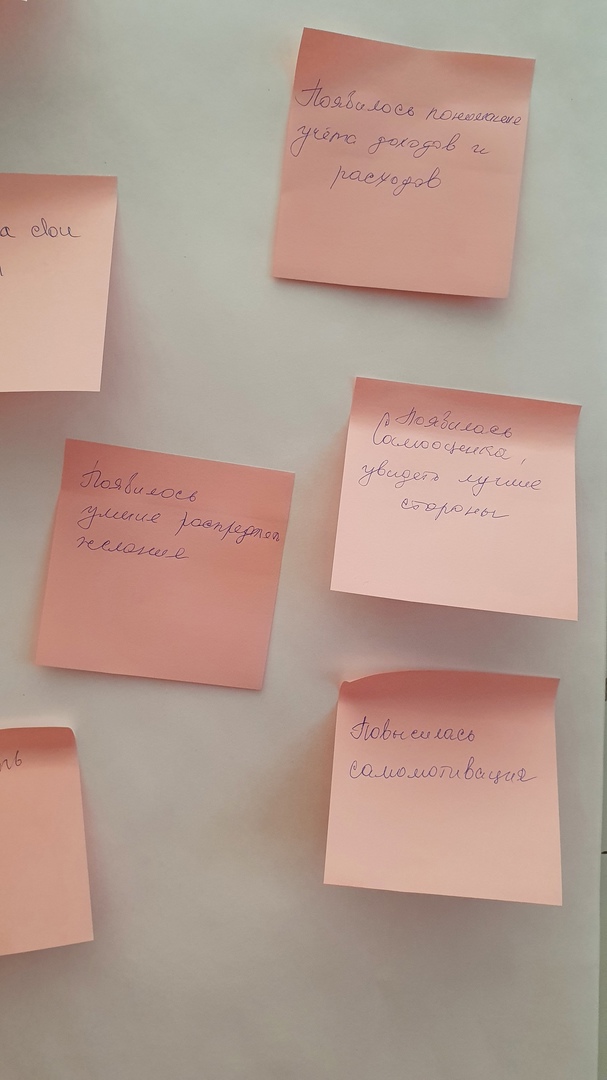 Появилось понимание
учёта доходов и
расходов
а свои
Появилось
Самооценка,
увидеть лучшие
стороны
Появилось
умение
желание
Повысилась
самомотивация
ть